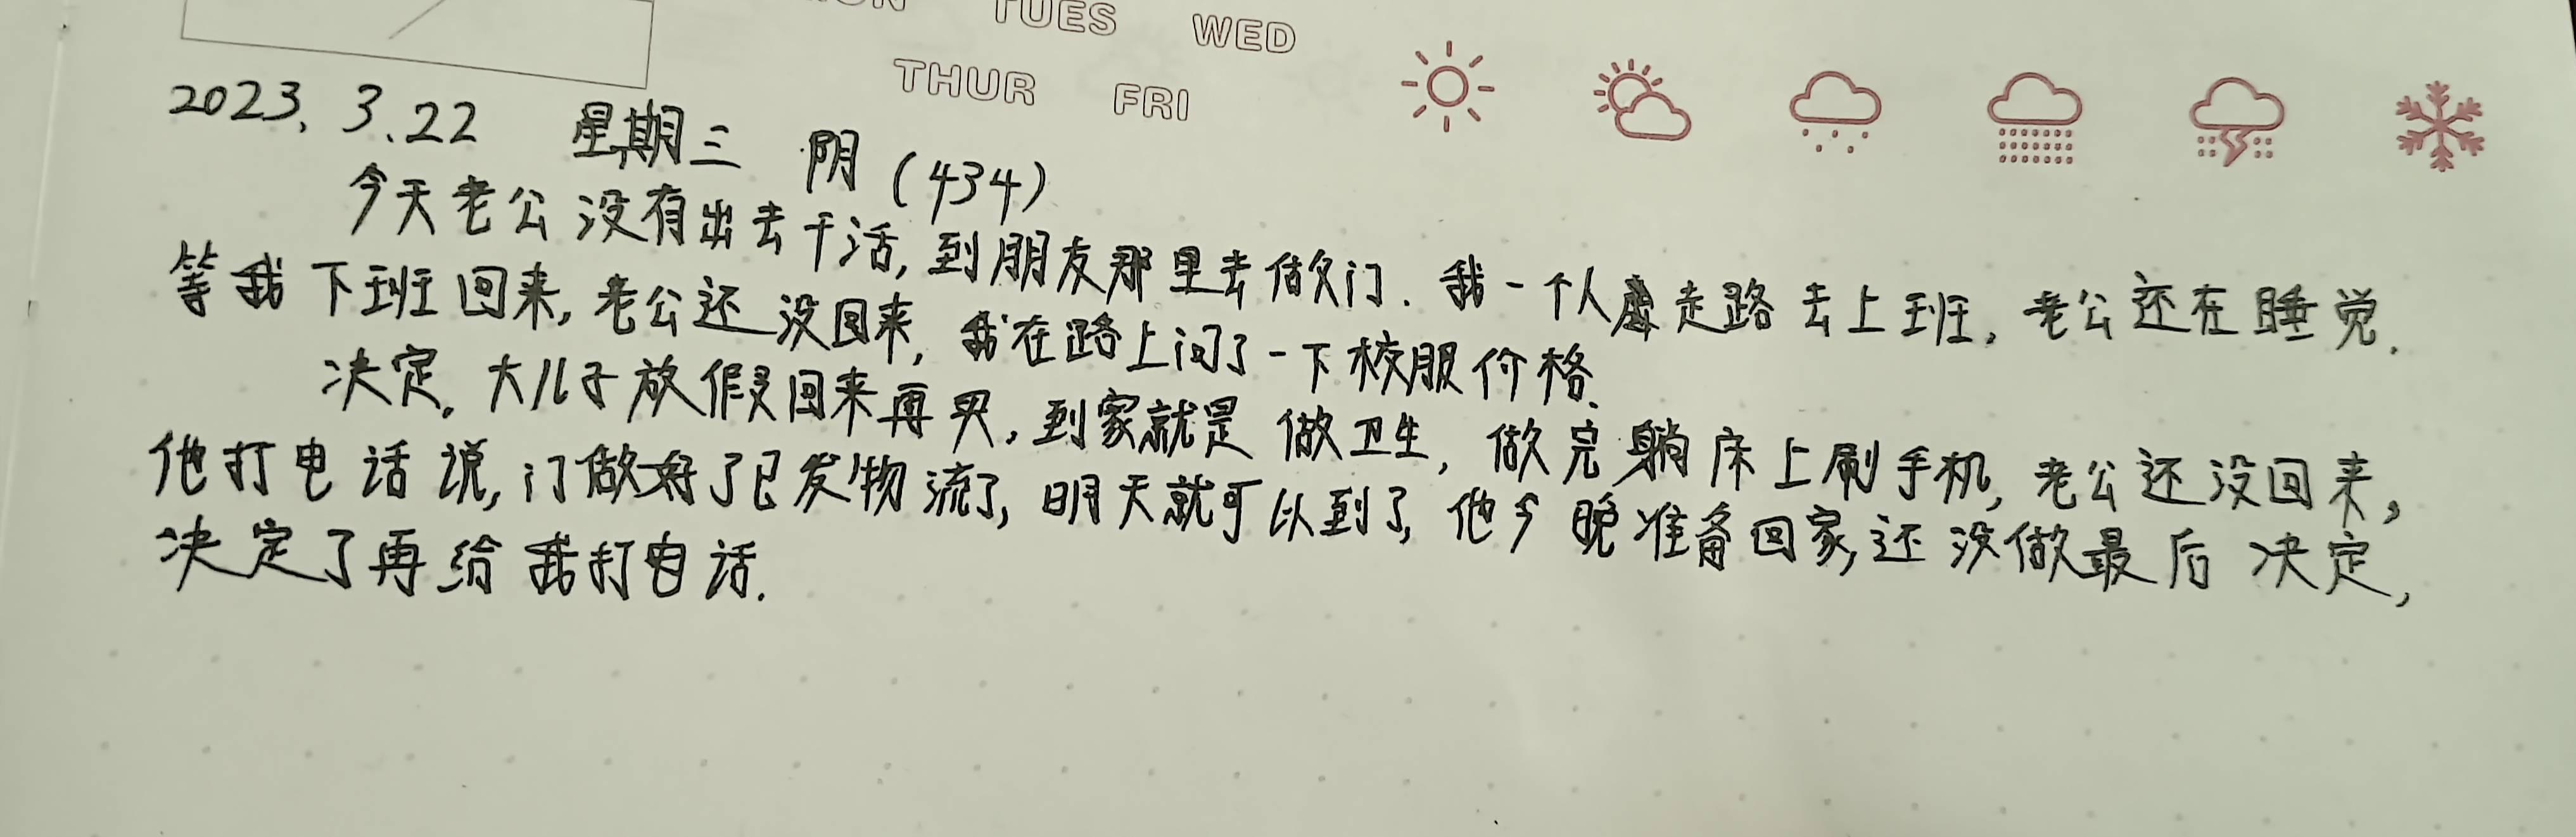 MON TUES WED
THUR FRI
2023.3.22 星期三 阴(434)
今天老公没有出去干活,到朋友那里去做门.我一个人走路去上班,老公还在睡觉.
等我下班回来,老公还没回来,我在路上问了一下校服价格.
决定,大儿子放假回来再买,到家就是做卫生,做完躺床上刷手机,老公还没回来,
他打电话说,门做好了已发物流了,明天就可以到了,他今晚准备回家,还没做最后决定,
决定了再给我打电话.